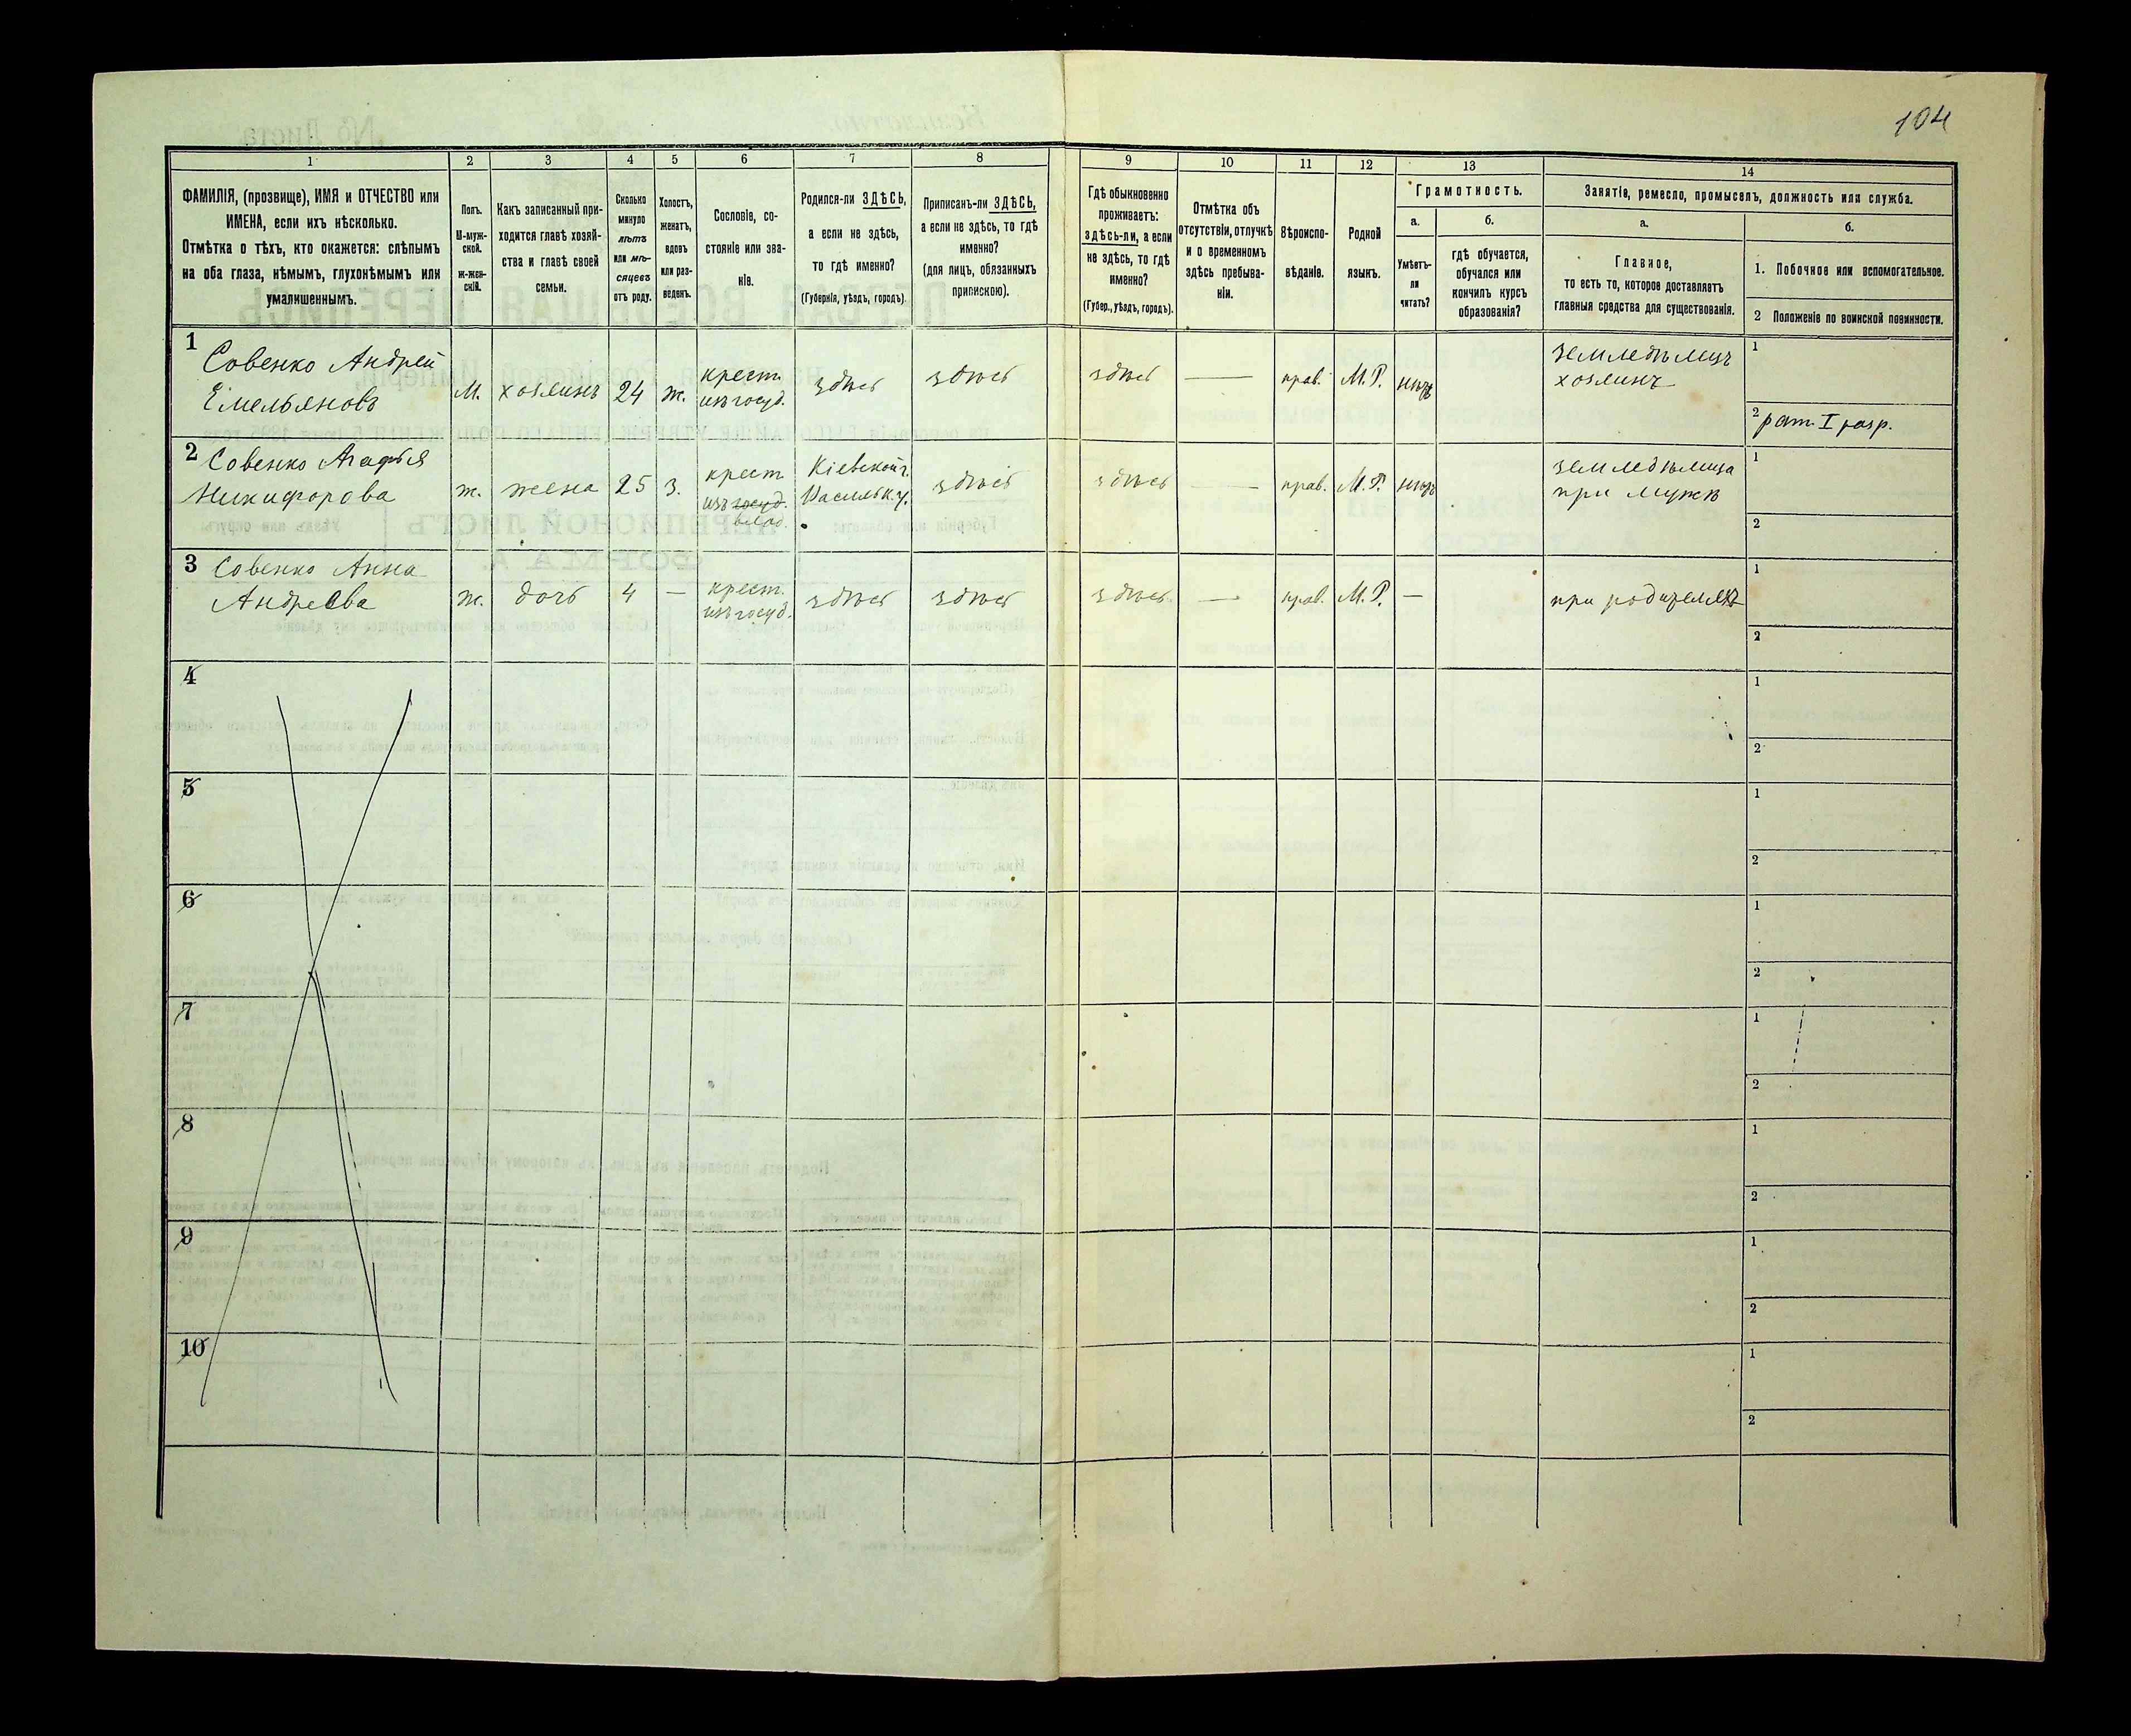 104
1
2
3
4
5
6
7
8
9
10
11
12
13
14
ФАМИЛІЯ, (прозвище), ИМЯ и ОТЧЕСТВО или
ИМЕНА, если ихъ нѣсколько.
Отмѣтка о тѣхъ, кто окажется: слѣпымъ
на оба глаза, нѣмымъ, глухонѣмымъ или
умалишеннымъ.
Полъ.
М-муж-
ской.
ж-жен-
скій.
Какъ записанный при-
ходится главѣ хозяй-
ства и главѣ своей
семьи.
Сколько
минуло
лѣтъ
или мѣ-
сяцевъ
отъ роду.
Холостъ,
женатъ,
вдовъ
или раз-
веденъ.
Сословіе, со-
стояніе или зва-
ніе.
Родился-ли ЗДѢСЬ,
а если не здѣсь,
то гдѣ именно?
(Губернія, уѣздъ, городъ).
Приписанъ-ли ЗДѢСЬ,
а если не здѣсь, то гдѣ
именно?
(для лицъ, обязанныхъ
припискою).
Гдѣ обыкновенно
проживаетъ:
здѣсь-ли, а если
не здѣсь, то гдѣ
именно?
(Губер., уѣздъ, городъ).
Отмѣтка объ
отсутствіи, отлучкѣ
и о временномъ
здѣсь пребыва-
ніи.
Вѣроиспо-
вѣданіе.
Родной
языкъ.
Грамотность.
а.
Умѣетъ-
ли
читать?
б.
гдѣ обучается,
обучался или
кончилъ курсъ
образованія?
Занятіе, ремесло, промыселъ, должность или служба.
а.
Главное,
то есть то, которое доставляетъ
главныя средства для существованія.
б.
1. Побочное или вспомогательное.
2 Положеніе по воинской повинности.
1
Совенко Андрей
Емельяновъ
М.
хозяинъ
24
ж.
крест.
изъ госуд.
здѣсь
здѣсь
здѣсь
—
прав.
М.Р.
нѣтъ
земледѣлецъ
хозяинъ
1
2 рат. I разр.
2 Совенко Агафья
Никифорова
ж.
жена
25
з.
крест
изъ госуд.
влад.
Кіевской г.
Васильк. у.
здѣсь
здѣсь
—
прав.
М.Р.
нѣтъ
земледѣлица
при мужѣ
1
2
3 Совенко Анна
Андреева
ж.
дочь
4
—
крест.
изъ госуд.
здѣсь
здѣсь
здѣсь
—
прав.
М.Р.
—
при родителяхъ
1
2
4
1
2
5
1
2
6
1
2
7
1
2
8
1
2
9
1
2
10
1
2